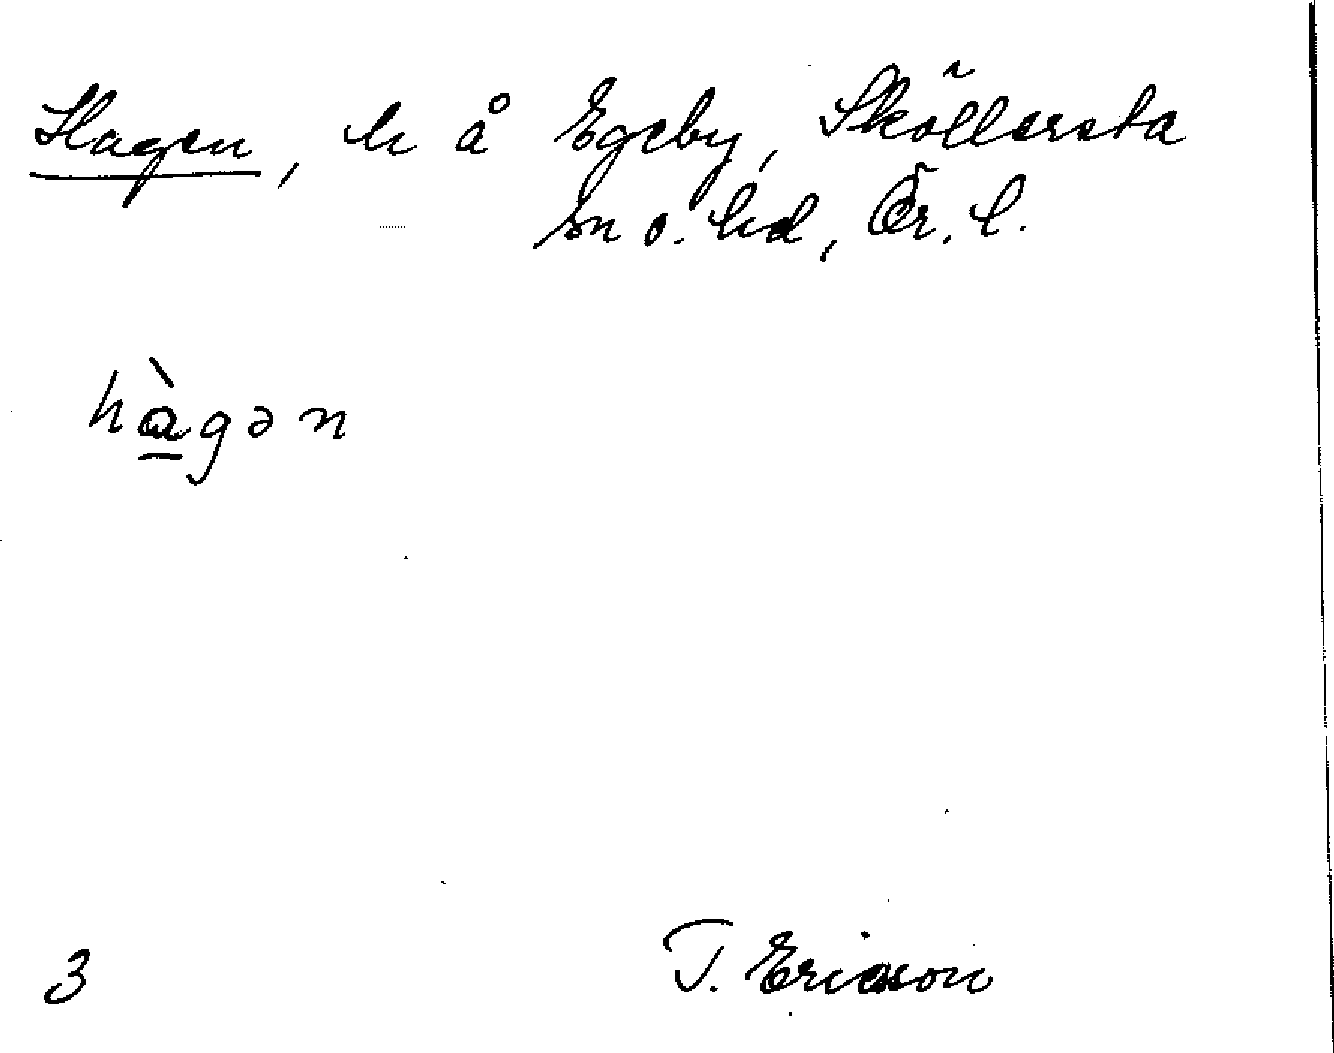 Hagen, h å Egeby, Sköllersta
sn o. hd, Ör. l.
hàgən
3
T. Ericson